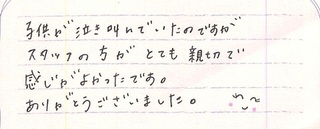 子供が泣き叫んでいたのですが
スタッフの方がとても親切で
感じがよかったです。
ありがとうございました。